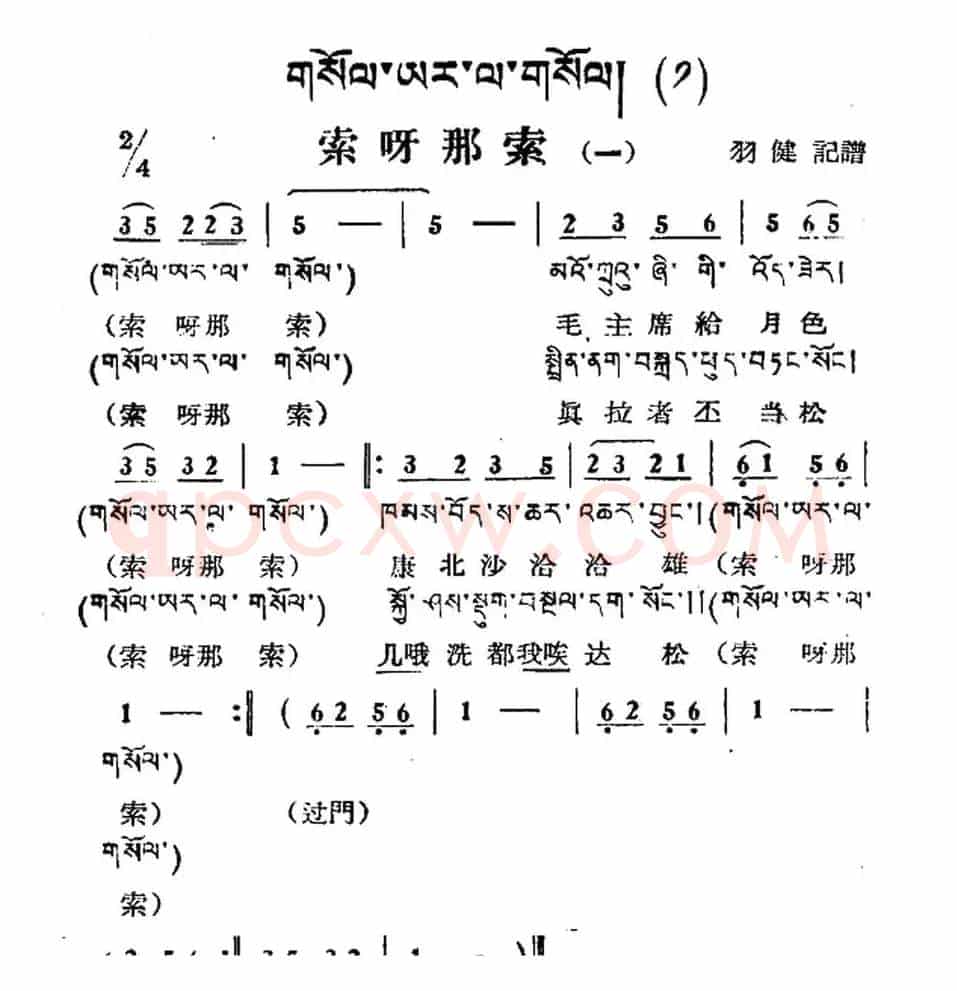 གསོལ་ཡར་ལ་གསོལ། (༡)
2/4 索呀那索（一） 羽健記譜
3 5 2 2 3 | 5 — | 5 — | 2 3 5 6 | 5 6 5
(གསོལ་ཡར་ལ་ གསོལ་) མའོ་ཀྲུའུ་ཞི་ གི་ འོད་ཟེར།
（索 呀那 索） 毛主席給月色
(གསོལ་ཡར་ལ་ གསོལ་) སྤྲིན་ནག་བསྐྲད་ཕུད་བཏང་སོང།
（索 呀那 索） 眞拉者丕当松
3 5 3 2 | 1 — ‖: 3 2 3 5 | 2 3 2 1 | 6̣ 1 5̣ 6̣ |
(གསོལ་ཡར་ལ་ གསོལ་) ཁམས་བོད་ས་ཆར་འཆར་བྱུང་། (གསོལ་ཡར་ལ་
（索 呀那 索） 康北沙洽洽雄（索 呀那
(གསོལ་ཡར་ལ་ གསོལ་) སྐྱོ་ཤས་སྡུག་བསྔལ་དག་ སོང་།།(གསོལ་ཡར་ལ་
（索 呀那 索） 几哦洗都我唉达 松（索 呀那
1 — :‖ ( 6̣ 2 5̣ 6̣ | 1 — | 6̣ 2 5̣ 6̣ | 1 — |
གསོལ་)
索） （过門）
གསོལ་)
索）
qpcxw.com